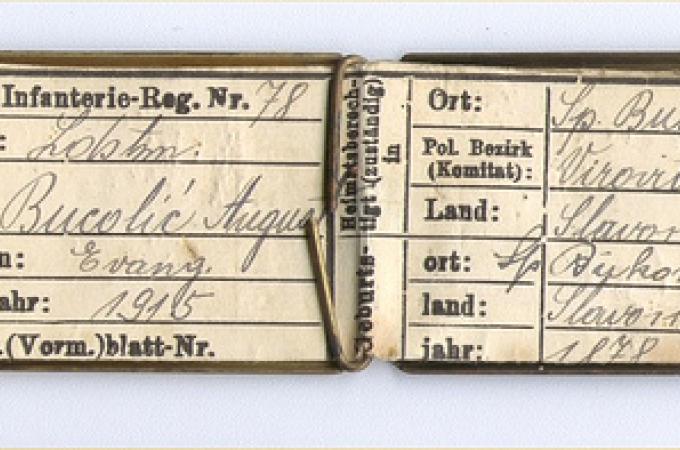 Infanterie-Reg. Nr. 78
: Ldstm.
Bucolić Augu
n: Evang.
ahr: 1915
.(Vorm.)blatt-Nr.
Heimatsberech-
tigt (zuständig)
in
Ort: Sp. Bu
Pol. Bezirk
(Komitat): Virovi
Land: Slavon
Geburts-
ort: Sp Bukov
land: Slavon
jahr: 1878